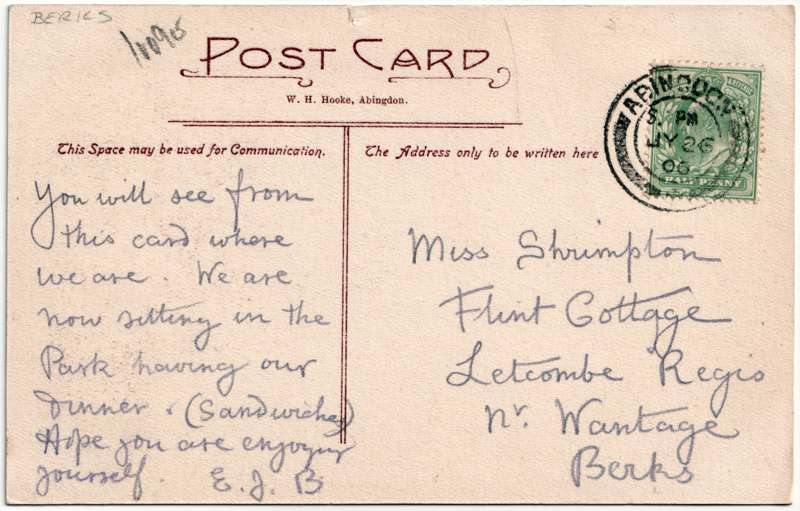 BERKS
POST CARD
W. H. Hooke, Abingdon.
This Space may be used for Communication.
The Address only to be written here
ABINGDON
PM
JY 26
06
HALF PENNY
You will see from
this card where
we are. We are
now sitting in the
Park having our
dinner. (Sandwiches)
Hope you are enjoying
yourself. E. J. B
Miss Shrimpton
Flint Cottage
Letcombe Regis
Nr. Wantage
Berks